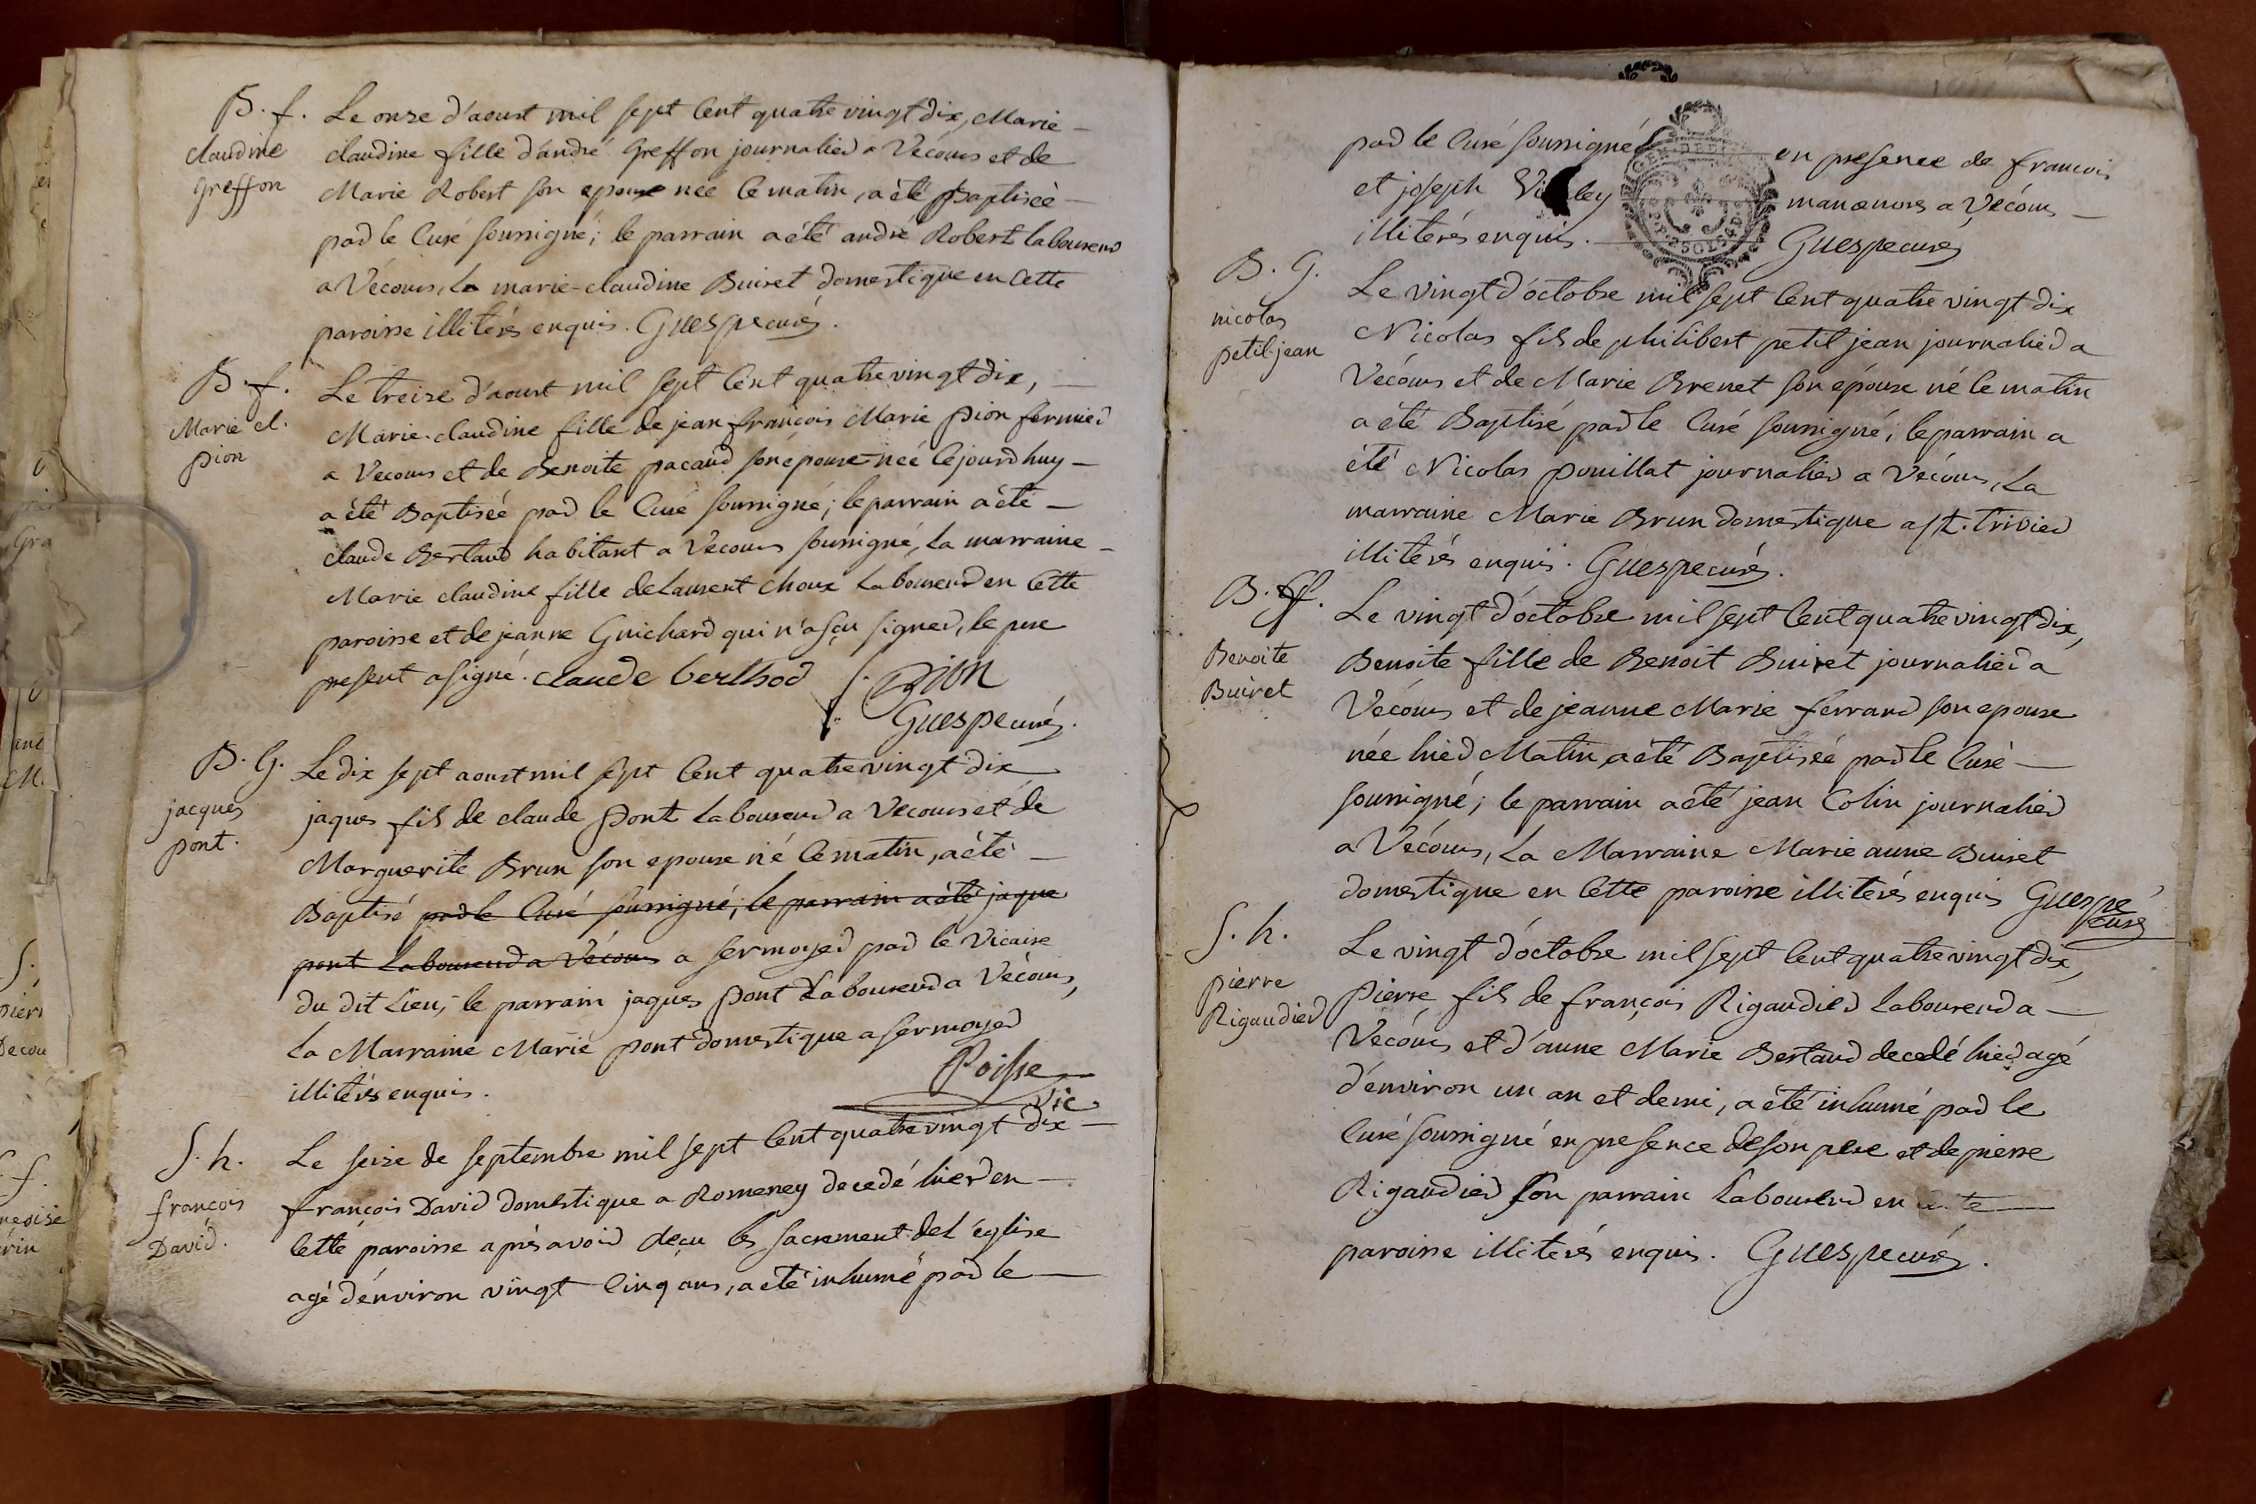 B. f.
claudine
greffon
Le onze d'aoust mil sept Cent quatre vingt dix, Marie
claudine fille d'andré greffon journalier a Vécours et de
Marie Robert son epouse née ce matin, a été Baptisée
par le Curé soussigné; le parrain a été andré Robert laboureur
a Vécours, la marie-claudine Buiret domestique en Cette
paroisse illiterés enquis. Guespe curé.
B. f.
Marie cl.
pion
Le treize d'aoust mil sept Cent quatre vingt dix,
Marie-claudine fille de jean françois Marie pion fermier
a Vecours et de Benoite pacaud son épouse née cejourdhuy
a été Baptisée par le Curé soussigné; le parrain a été
claude Bertaud habitant a Vecours soussigné, la marraine
Marie claudine fille de Laurent Choux Laboureur en Cette
paroisse et de jeanne Guichard qui n'a sçu signer, le pere
present a signé. claude berthod f. pion
Guespe curé.
B. G.
jacques
pont.
Le dix sept aoust mil sept Cent quatre vingt dix
jaques fils de claude Pont Laboureur a Vecours et de
Marguerite Brun son epouse né ce matin, a été
Baptisé par le Curé soussigné, le parrain a été jaque
pont Laboureur a Vécours a sermoyer par le Vicaire
du dit Lieu, le parrain jaques Pont Laboureur a Vécours,
La Marraine Marie pont domestique a sermoyer
illiterés enquis. Poisse
Vic
S. h.
françois
David.
Le seize de septembre mil sept Cent quatre vingt dix
françois David domestique a Romeney decedé hier en
Cette paroisse après avoir reçu les sacrement de L'église
agé d'énviron vingt Cinq ans, a été inhumé par le
par le Curé soussigné en presence de francois
et joseph manœuvres a Vécours
illiterés enquis. Guespe curé
B. G.
nicolas
petit-jean
Le vingt d'octobre mil sept Cent quatre vingt dix
Nicolas fils de philibert petit jean journalier a
Vécours et de Marie Brenet son épouse né le matin
a été Baptisé par le Curé soussigné; le parrain a
été Nicolas pouillat journalier a Vécours, La
marraine Marie Brun domestique a st. Trivier
illiterés enquis. Guespe curé.
B. ff.
Benoite
Buiret
Le vingt d'octobre mil sept Cent quatre vingt dix,
Benoite fille de Benoit Buiret journalier a
Vécours et de jeanne Marie ferrand son epouse
née hier Matin a été Baptisée par le Curé
soussigné; le parrain a été jean Colin journalier
a Vécours, La Marraine Marie anne Buiret
domestique en Cette paroisse illiterés enquis Guespe
curé
S. h.
pierre
Rigaudier
Le vingt d'octobre mil sept Cent quatre vingt dix,
Pierre fils de françois Rigaudier Laboureur a
Vécours et d'anne Marie Bertaud decedé hier agé
d'énviron un an et demi, a été inhumé par le
Curé soussigné en presence de son pere et de pierre
Rigaudier son parrain Laboureur en cette
paroisse illiterés enquis. Guespe curé.